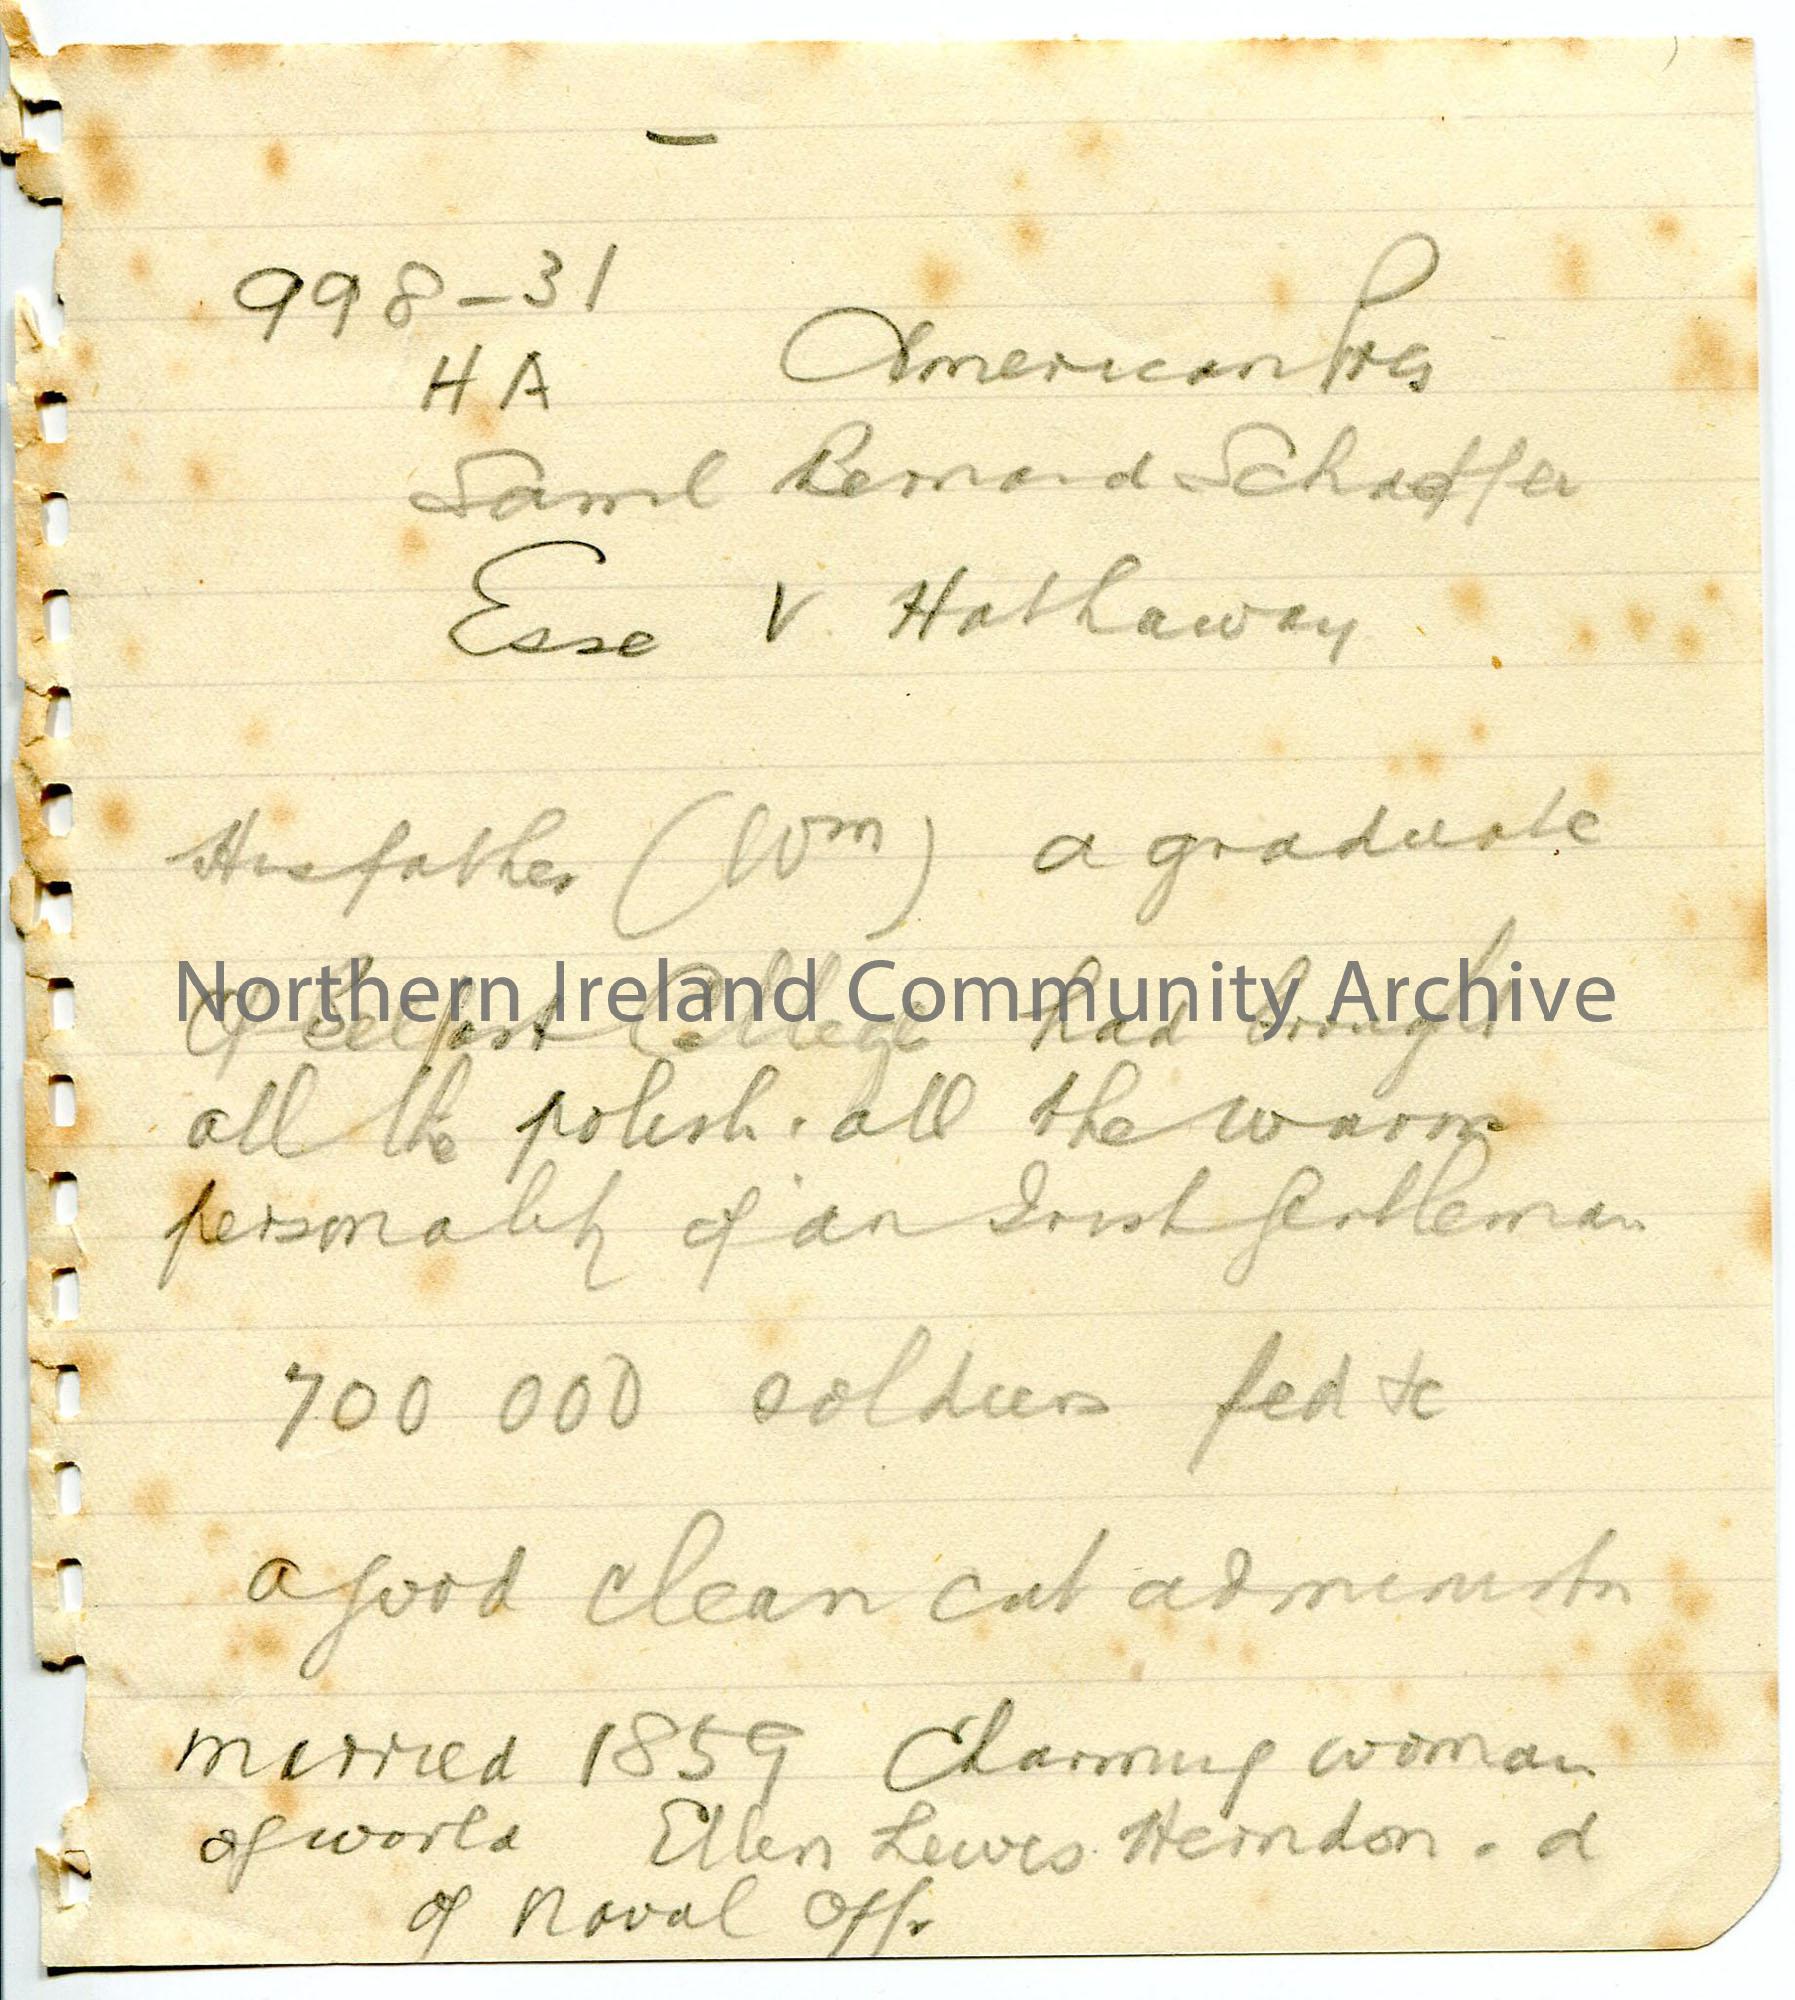 —
998-31
HA American Pres
Saml Bernard Schaeffer
Esse V. Hathaway
His father (Wm) a graduate
of Belfast College had brought
Northern Ireland Community Archive
all the polish. all the warm
personality of an Irish Gentleman
700 000 soldiers fed &c
a good clean cut administr
married 1859 Charming woman
of world Ellen Lewis Herndon. d
of Naval Offr